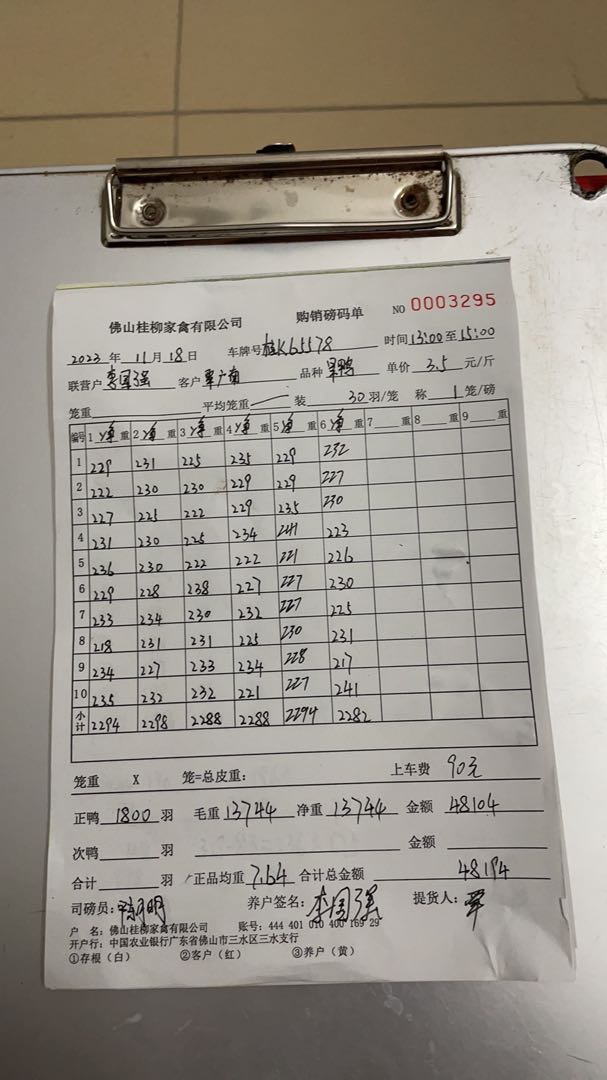 佛山桂柳家禽有限公司 购销磅码单 NO 0003295
2023年11月18日 车牌号桂K65578 时间13:00至15:00
联营户李国强 客户覃广南 品种 单价3.5元/斤
笼重 平均笼重 装30羽/笼 称1笼/磅
编号 1净重 2净重 3净重 4净重 5净重 6净重 7重 8重 9重
1 229 231 225 235 229 232
2 222 230 230 229 229 227
3 227 225 222 229 235 230
4 231 230 225 234 241 223
5 236 230 222 222 221 226
6 229 228 238 227 227 230
7 233 234 230 232 227 225
8 218 231 231 225 230 231
9 234 227 233 234 228 217
10 235 232 232 221 227 241
小计 2294 2298 2288 2288 2294 2282
笼重 X 笼=总皮重: 上车费 90元
正鸭1800羽 毛重13744 净重13744 金额48104
次鸭 羽 金额
合计 羽 正品均重7.64 合计总金额48194
司磅员: 养户签名:李国强 提货人:覃
户 名:佛山桂柳家禽有限公司 账号:444 401 010 400 169 29
开户行:中国农业银行广东省佛山市三水区三水支行
①存根(白) ②客户(红) ③养户(黄)